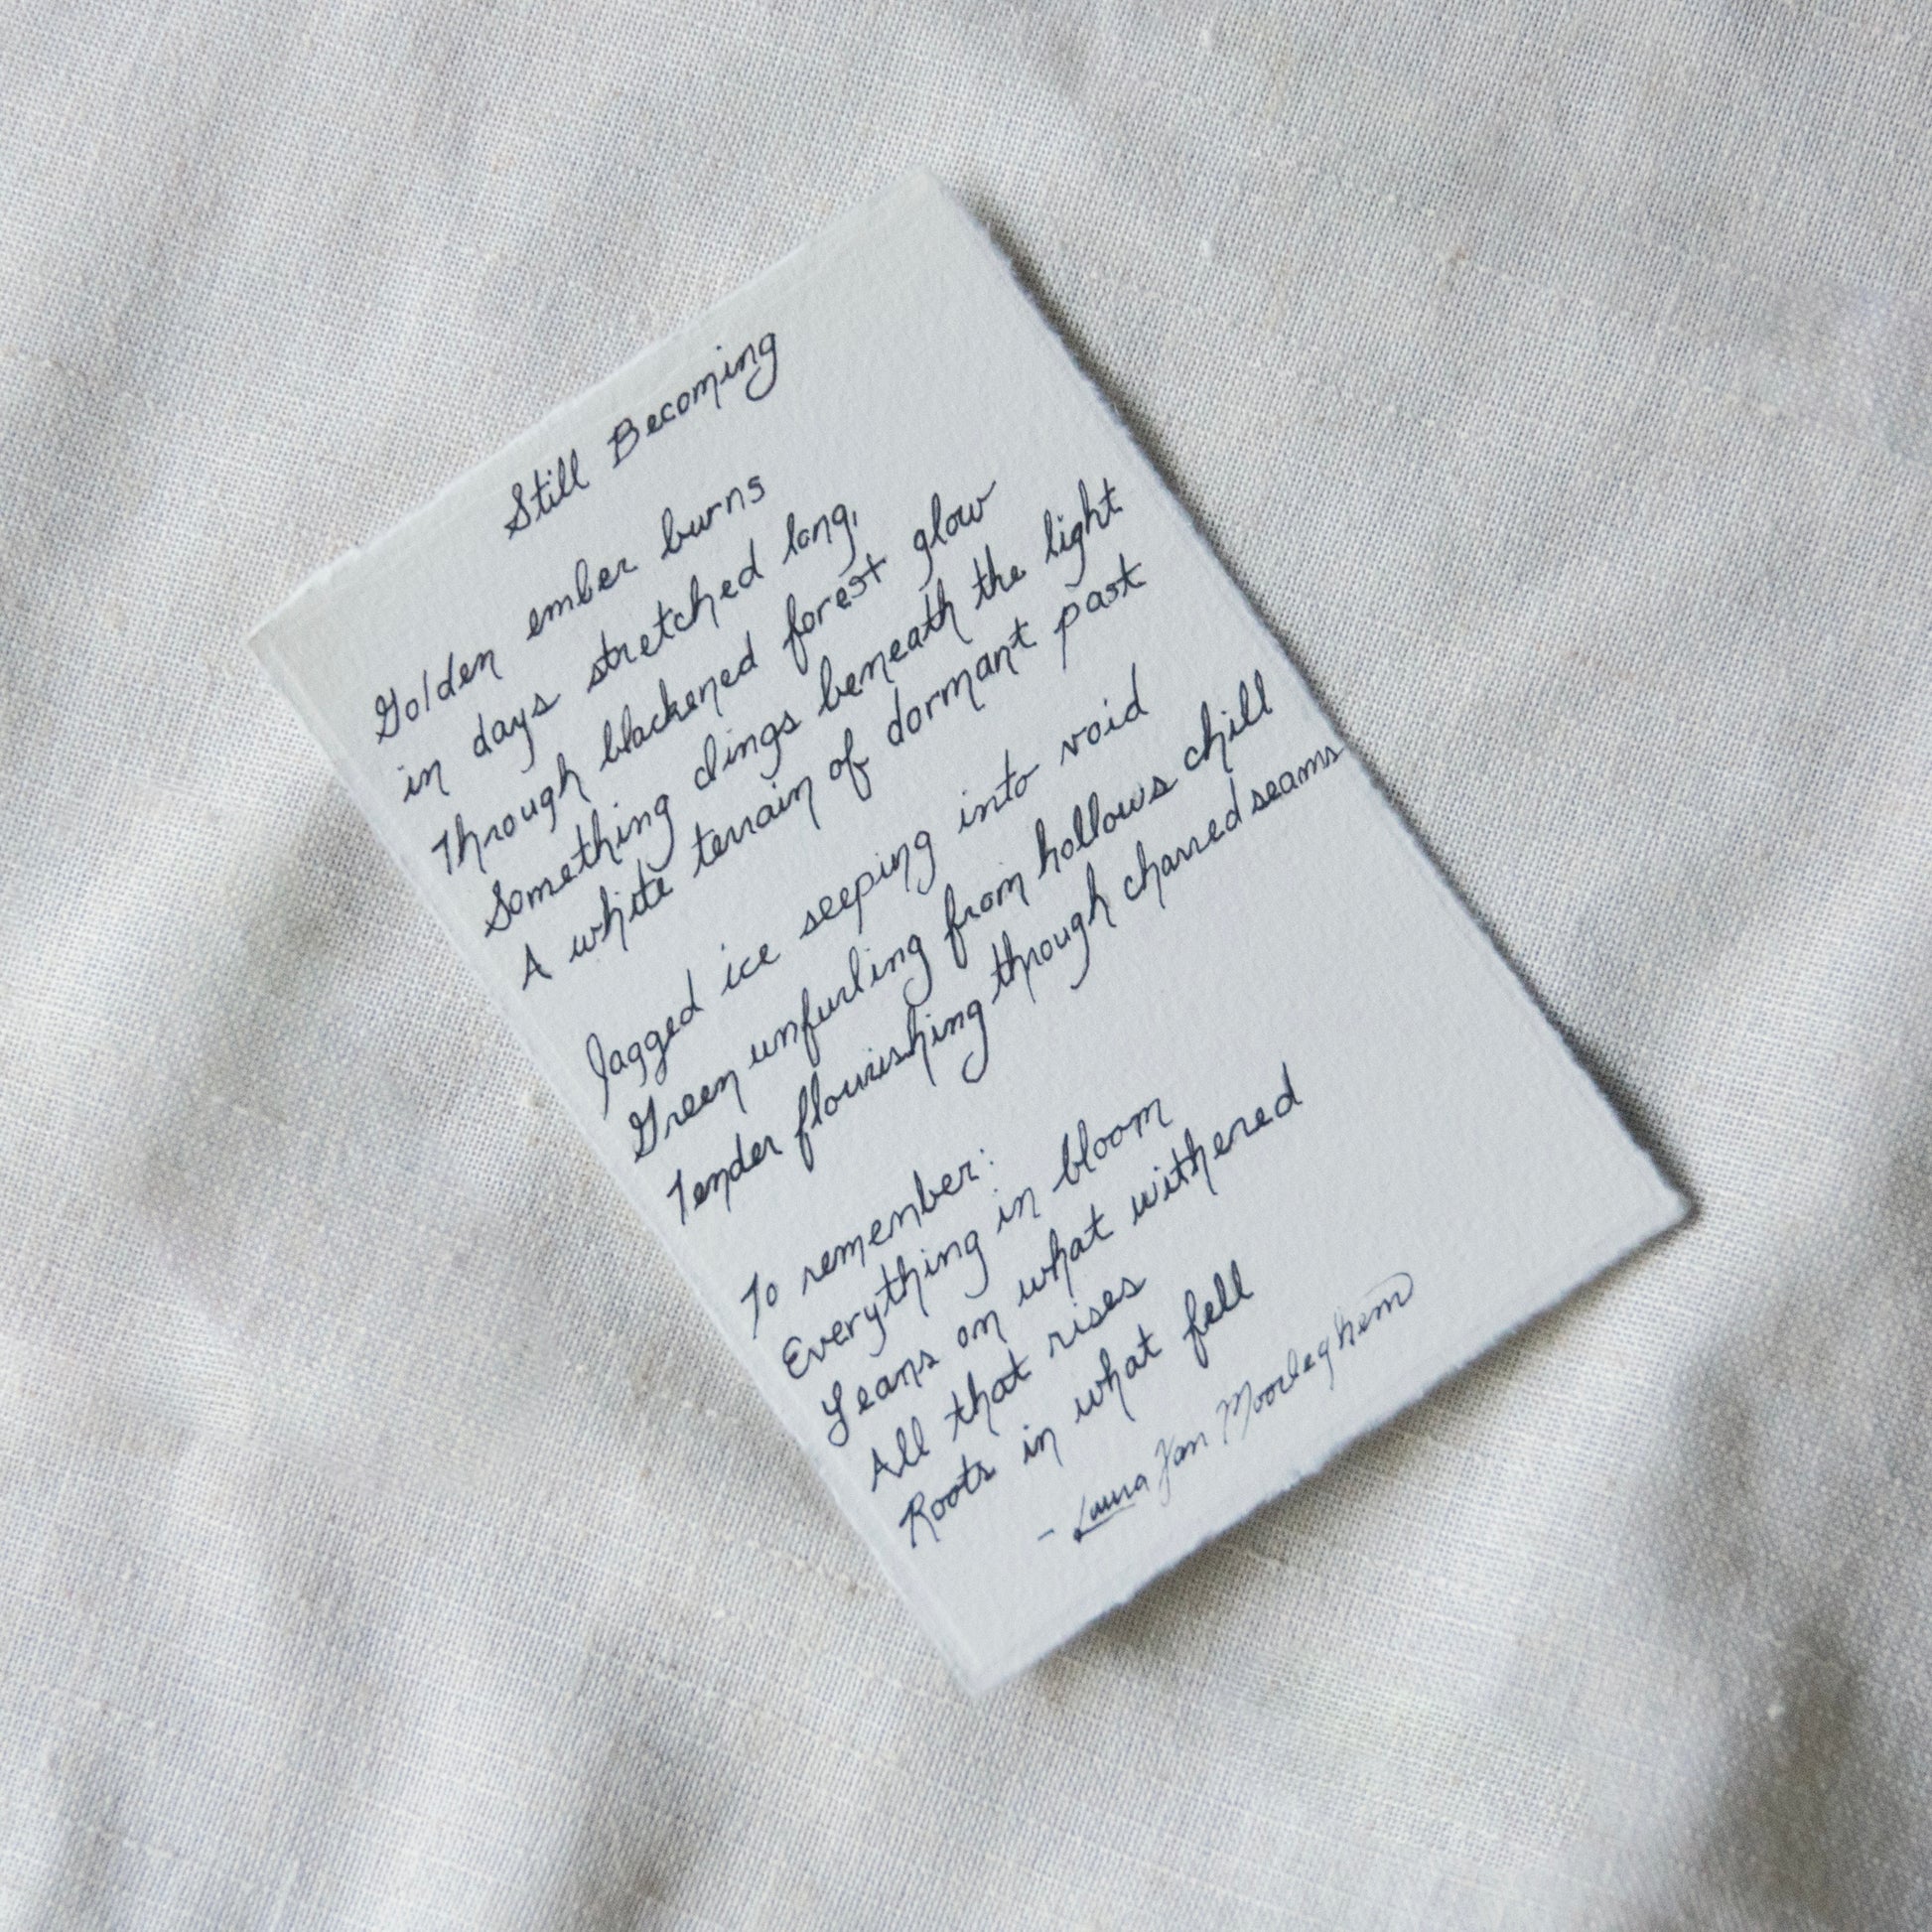 Still Becoming
Golden ember burns
in days stretched long,
Through blackened forest glow
Something clings beneath the light
A white terrain of dormant past
Jagged ice seeping into void
Green unfurling from hollows chill
Tender flourishing through charred seams
To remember:
Everything in bloom
Leans on what withered
All that rises
Roots in what fell
- Laura Van Moorleghem